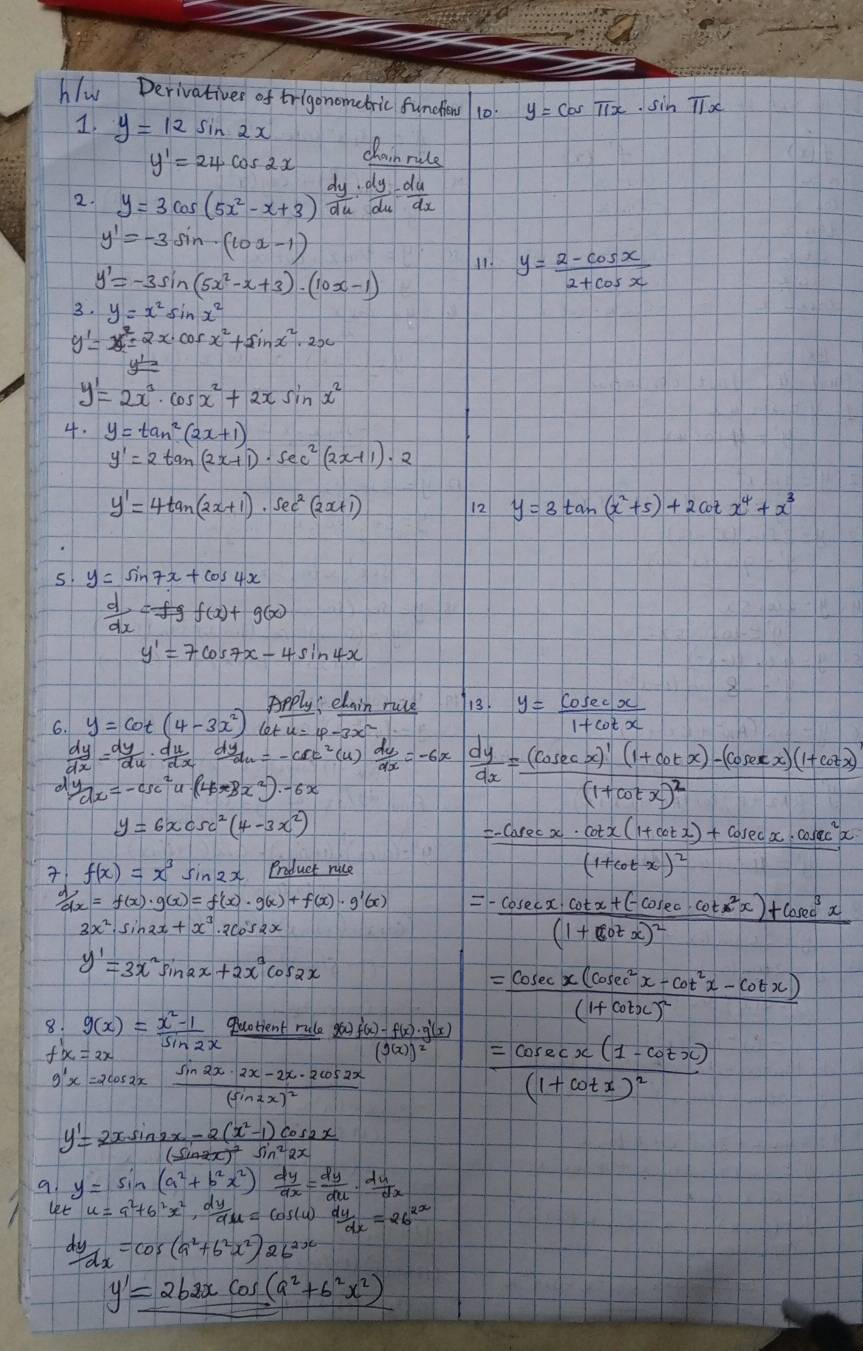 h/w Derivatives of trigonometric functions
1. y = 12 sin 2x
y' = 24 cos 2x chain rule
2. y = 3 cos (5x² - x + 3) dy/du · dy/du = du/dx
y' = -3 sin · (10x - 1)
y' = -3 sin (5x² - x + 3) · (10x - 1)
3. y = x² sin x²
y' = x² = 2x · cos x² + sin x² · 2x
y' =
y' = 2x³ · cos x² + 2x sin x²
4. y = tan² (2x + 1)
y' = 2 tan (2x + 1) · sec² (2x + 1) · 2
y' = 4 tan (2x + 1) · sec² (2x + 1)
5. y = sin 7x + cos 4x
d/dx = fg f(x) + g(x)
y' = 7 cos 7x - 4 sin 4x
Apply; chain rule
6. y = cot (4 - 3x²) let u = 4 - 3x²
dy/dx = dy/du · du/dx dy/du = -csc² (u) dy/dx = -6x
dy/dx = -csc² u (4 - 3x²) · -6x
y = 6x csc² (4 - 3x²)
7. f(x) = x³ sin 2x Product rule
d/dx = f(x) · g(x) = f(x) · g(x) + f(x) · g'(x)
3x² · sin 2x + x³ · 2 cos 2x
y' = 3x² sin 2x + 2x³ cos 2x
8. g(x) = x² - 1 / sin 2x Quotient rule g(x) f'(x) - f(x) · g'(x) / (g(x))²
f'x = 2x
g'x = 2 cos 2x sin 2x · 2x - 2x · 2 cos 2x / (sin 2x)²
y' = 2x sin 2x - 2 (x² - 1) cos 2x / (sin 2x)² sin² 2x
9. y = sin (a² + b² x²) dy/dx = dy/du · du/dx
let u = a² + b² x², dy/du = cos (u) dy/dx = 2b^2x
dy/dx = cos (a² + b² x²) 2b^2x
y' = 2b2x cos (a² + b² x²)
10. y = cos πx · sin πx
11. y = 2 - cos x / 2 + cos x
12 y = 3 tan (x² + 5) + 2 cot x⁴ + x³
13. y = Cosec x / 1 + cot x
dy/dx = (Cosec x)' (1 + cot x) - (Cosec x) (1 + cot x)' / (1 + cot x)²
= -Cosec x · cot x (1 + cot x) + Cosec x · cosec² x / (1 + cot x)²
= -cosec x · cot x + (-cosec · cot² x) + Cosec³ x / (1 + cot x)²
= Cosec x (Cosec² x - cot² x - cot x) / (1 + cot x)²
= Cosec x (1 - cot x) / (1 + cot x)²